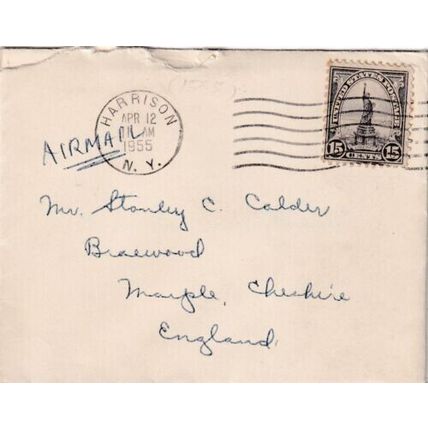 (1555)
HARRISON
APR 12
AM
1955
N. Y.
AIRMAIL
UNITED STATES POSTAGE
15 CENTS 15
Mr. Stanley C. Calder
Braewood
Marple, Cheshire
England.